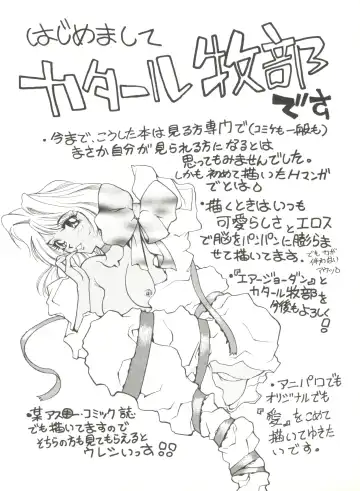 はじめまして
カタール牧部
です
・今まで、こうした本は見る方専門で(コミケも一般も)
まさか自分が見られる方になるとは
思ってもみませんでした。
しかも初めて描いたHマンガ
でとは。
・描くときはいつも
可愛らしさとエロス
で脳をパンパンに膨らま
せて描いてます。
でも力が
伴わない
アウッ
・『エアージョーダン』と
カタール牧部を
今後もよろしく!
・アニパロでも
オリジナルでも
『愛』をこめて
描いてゆきた
いです。
・某アス・コミック誌
でも描いてますので
そちらの方も見てもらえると
ウレシいっス!!